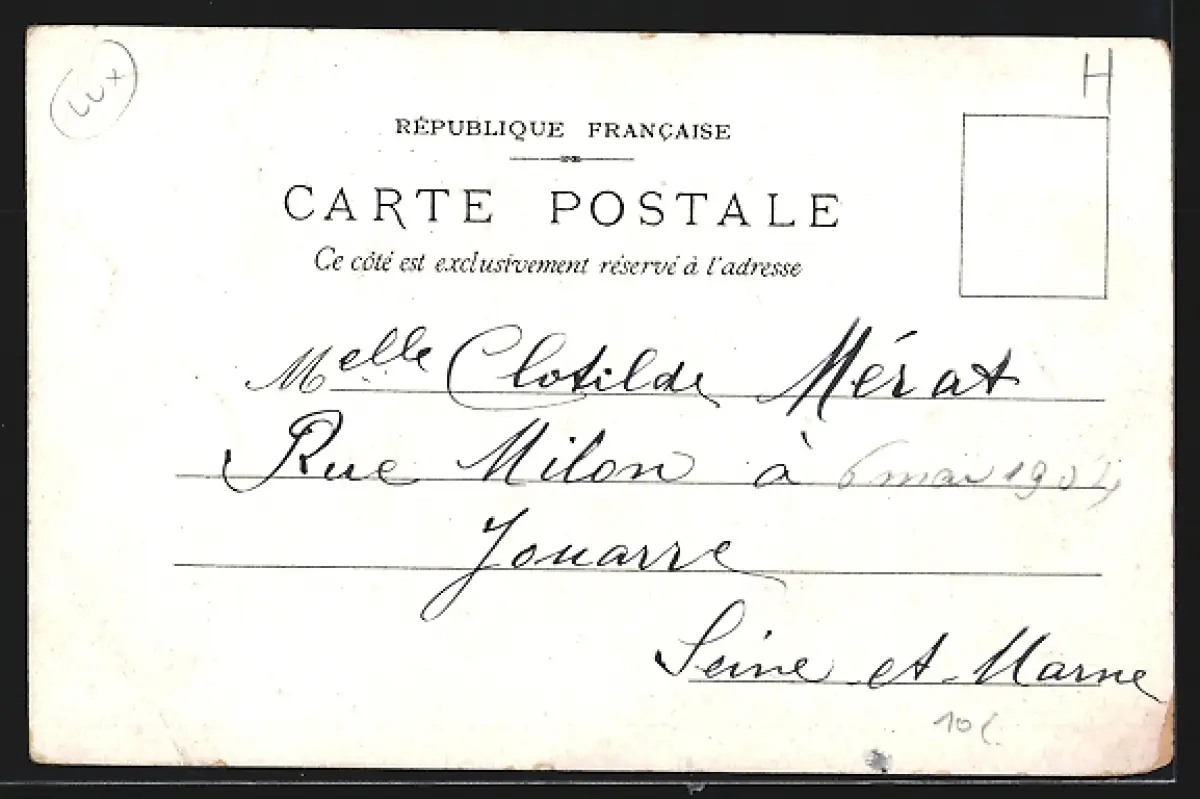 Lux
H
RÉPUBLIQUE FRANÇAISE
CARTE POSTALE
Ce côté est exclusivement réservé à l'adresse
Melle Clotilde Mérat
Rue Milon à 6 mai 1904
Jouarre
Seine-et-Marne
10